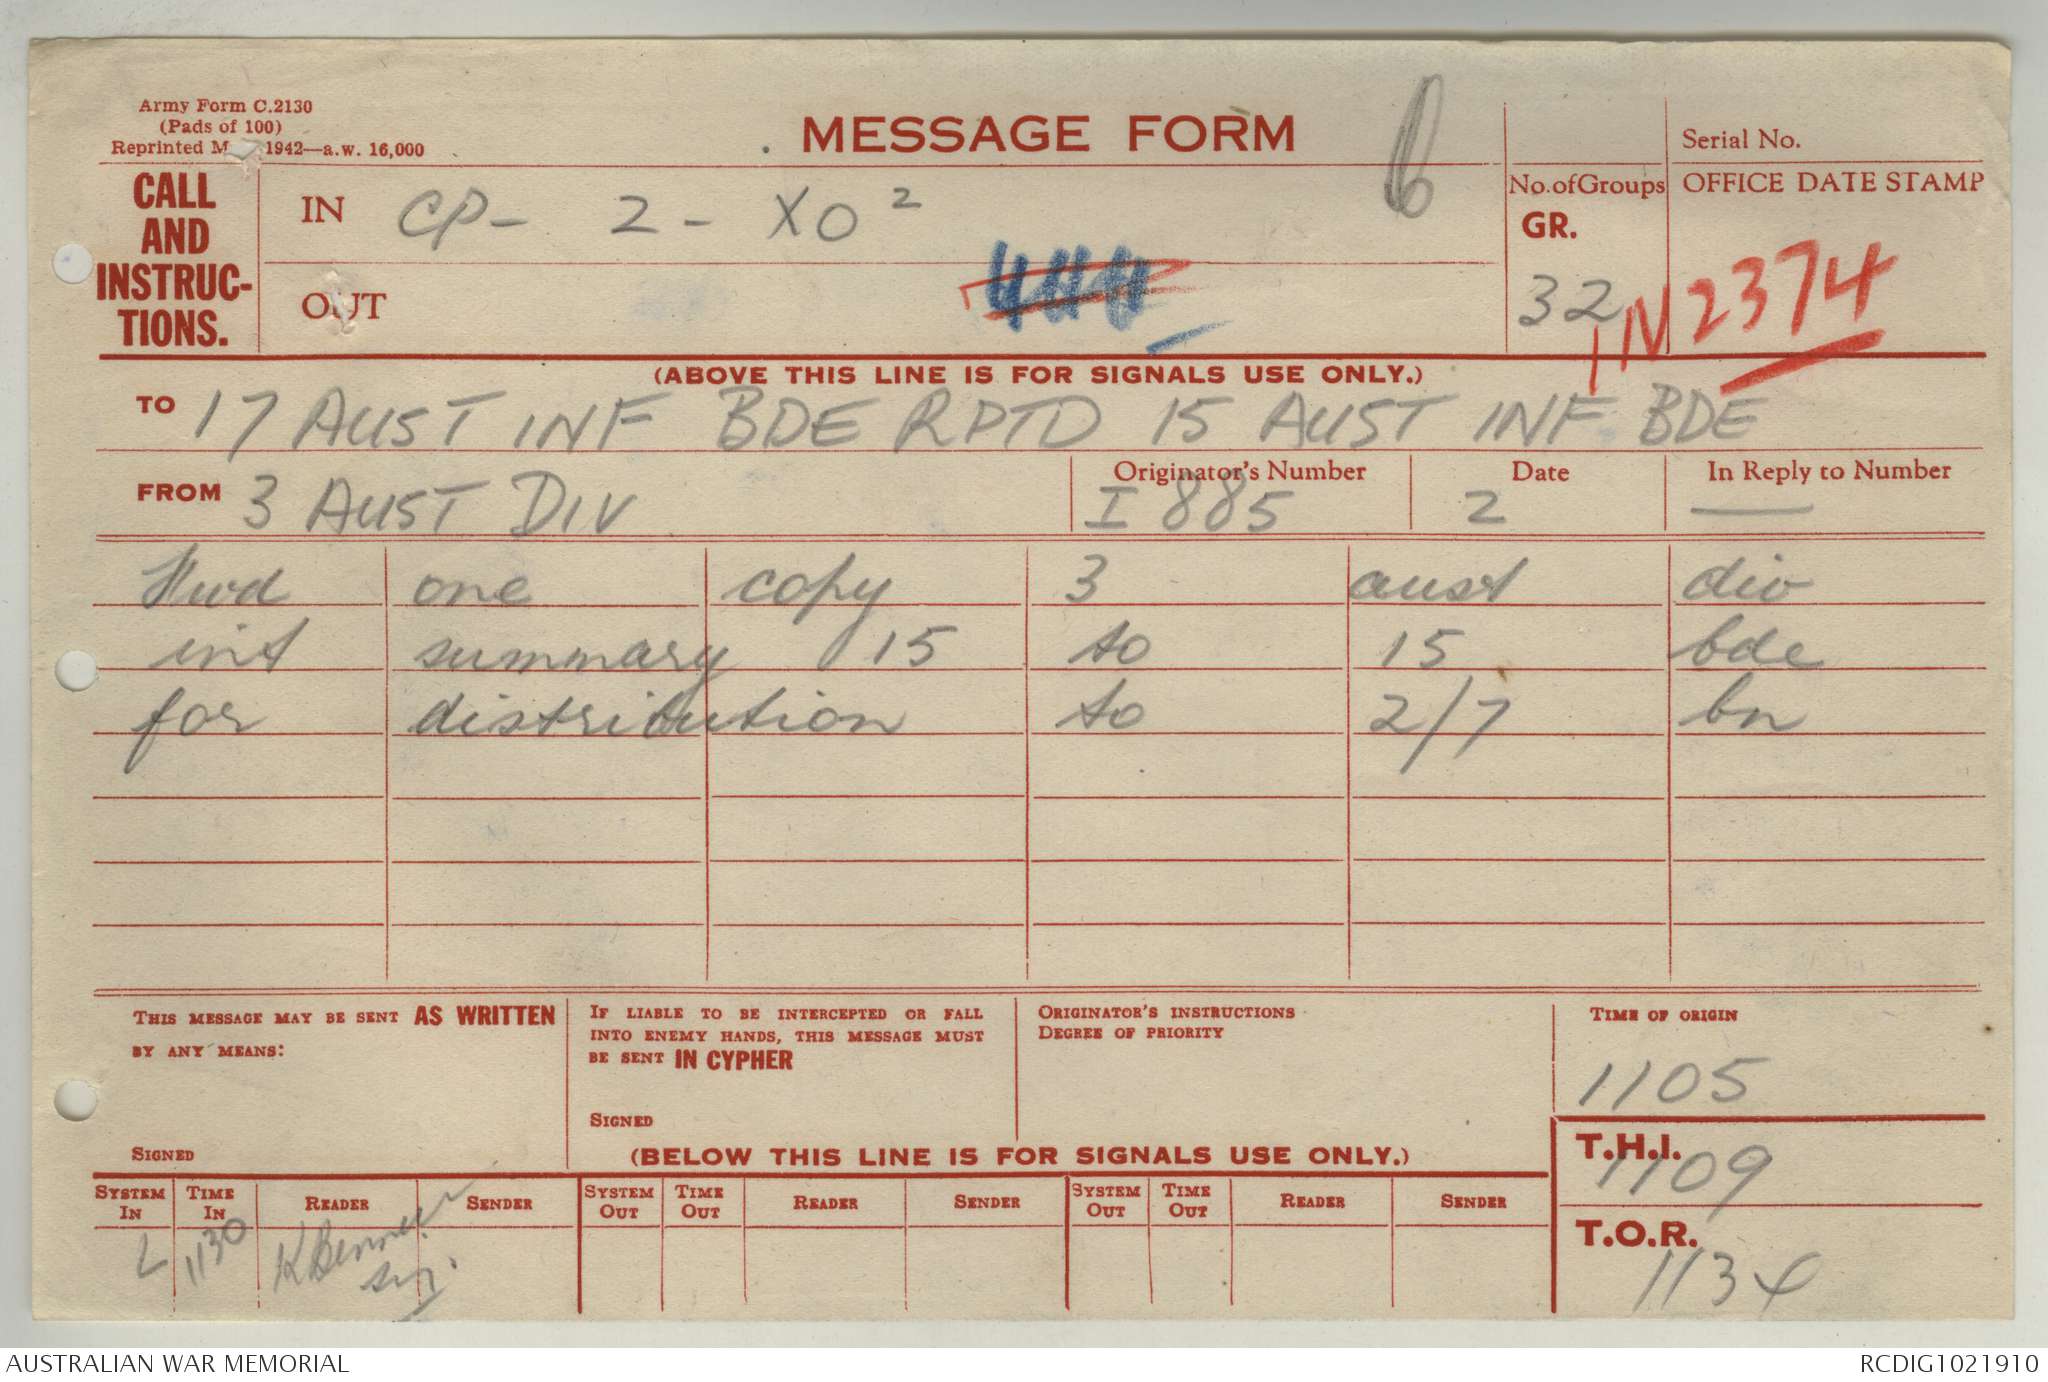 Army Form C.2130
(Pads of 100)
Reprinted 1942—a.w. 16,000
MESSAGE FORM
Serial No.
CALL AND INSTRUC-TIONS.
IN CP- 2 - XO 2
OUT
No. of Groups
GR.
32
OFFICE DATE STAMP
IN 2374
(ABOVE THIS LINE IS FOR SIGNALS USE ONLY.)
TO 17 AUST INF BDE RPTD 15 AUST INF BDE
FROM 3 AUST DIV
Originator's Number
I 885
Date
2
In Reply to Number
—
Fwd one copy 3 aust div
int summary 15 to 15 bde
for distribution to 2/7 bn
THIS MESSAGE MAY BE SENT AS WRITTEN
BY ANY MEANS:
SIGNED
IF LIABLE TO BE INTERCEPTED OR FALL
INTO ENEMY HANDS, THIS MESSAGE MUST
BE SENT IN CYPHER
SIGNED
ORIGINATOR'S INSTRUCTIONS
DEGREE OF PRIORITY
TIME OF ORIGIN
1105
(BELOW THIS LINE IS FOR SIGNALS USE ONLY.)
T.H.I.
1109
T.O.R.
1134
SYSTEM IN TIME IN READER SENDER SYSTEM OUT TIME OUT READER SENDER SYSTEM OUT TIME OUT READER SENDER
L 1130
AUSTRALIAN WAR MEMORIAL
RCDIG1021910